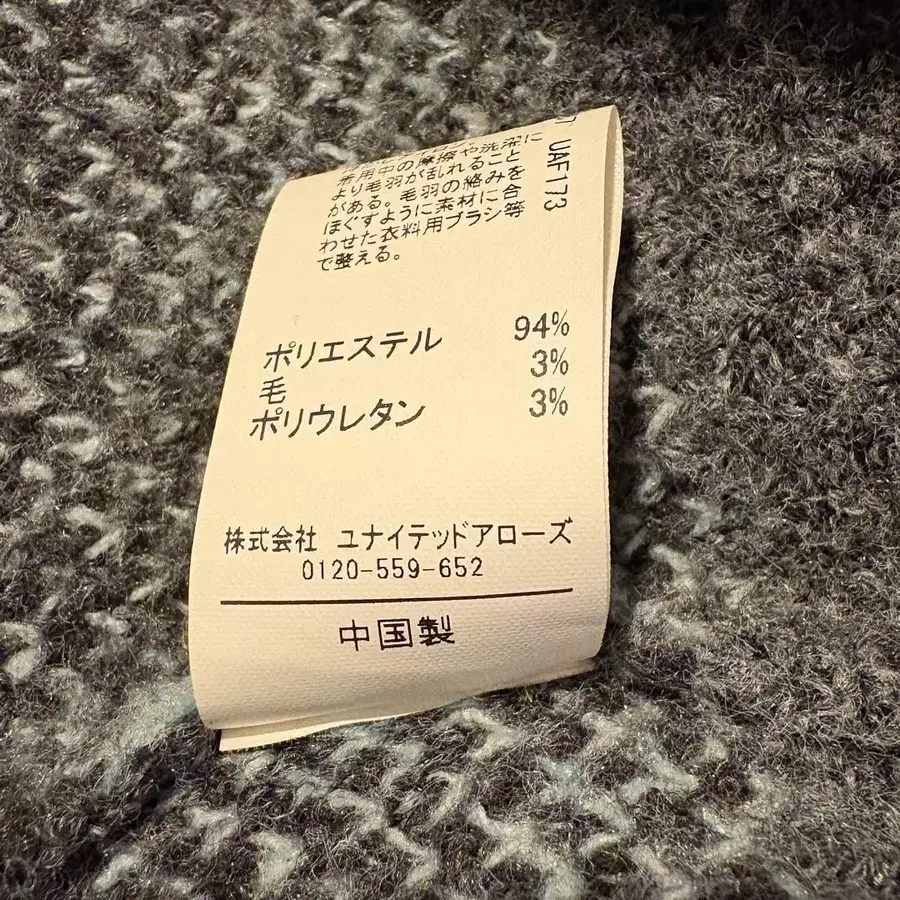 着用中の摩擦や洗濯に
より毛羽が乱れること
がある。毛羽の絡みを
ほぐすように素材に合
わせた衣料用ブラシ等
で整える。
UAF173
ポリエステル 94%
毛 3%
ポリウレタン 3%
株式会社 ユナイテッドアローズ
0120-559-652
中国製